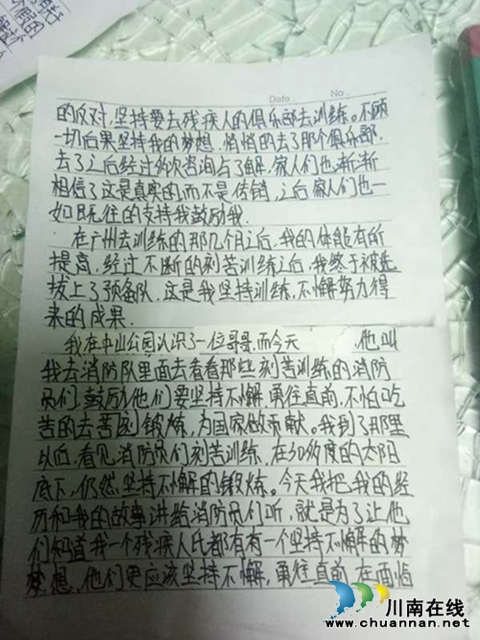 Date. No.
的反对,坚持要去残疾人的俱乐部去训练。不顾
一切后果坚持我的梦想,悄悄的去了那个俱乐部,
去了之后经过多次咨询与了解,家人们也渐渐
相信了这是真实的,而不是传销,之后家人们也一
如既往的支持我鼓励我.
在广州去训练的那几个月之后,我的体能有所
提高,经过不断的刻苦训练之后,我终于被选
拔上了预备队,这是我坚持训练,不懈努力得
来的成果.
我在中山公园认识了一位哥哥,而今天 ,他叫
我去消防队里面去看看那些刻苦训练的消防
员们,鼓励他们要坚持不懈,勇往直前,不怕吃
苦的去苦刻锻炼,为国家做贡献。我到了那里
以后,看见消防员们刻苦训练,在30多度的太阳
底下,仍然坚持不懈的锻炼。今天我把我的经
历和我的故事讲给消防员们听,就是为了让他
们知道我一个残疾人民都有有一个坚持不懈的梦
梦想,他们更应该坚持不懈,勇往直前,在面临
川南在线
www.chuannan.net